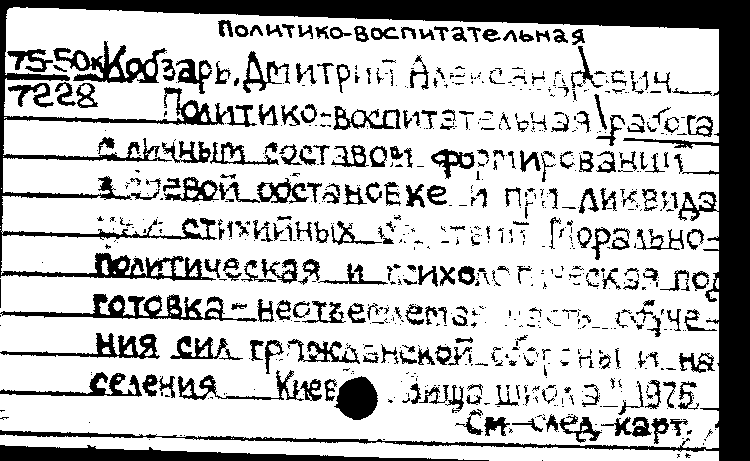 Политико-воспитательная
75-50к Кобзарь, Дмитрий Александрович.
7228 Политико-воспитательная работа
с личным составом формирований
в боевой обстановке и при ликвида
ции стихийных бедствий. Морально-
политическая и психологическая под
готовка - неотъемлемая часть обуче-
ния сил гражданской обороны и на
селения Киев, "Вища школа", 1975.
См. след. карт.